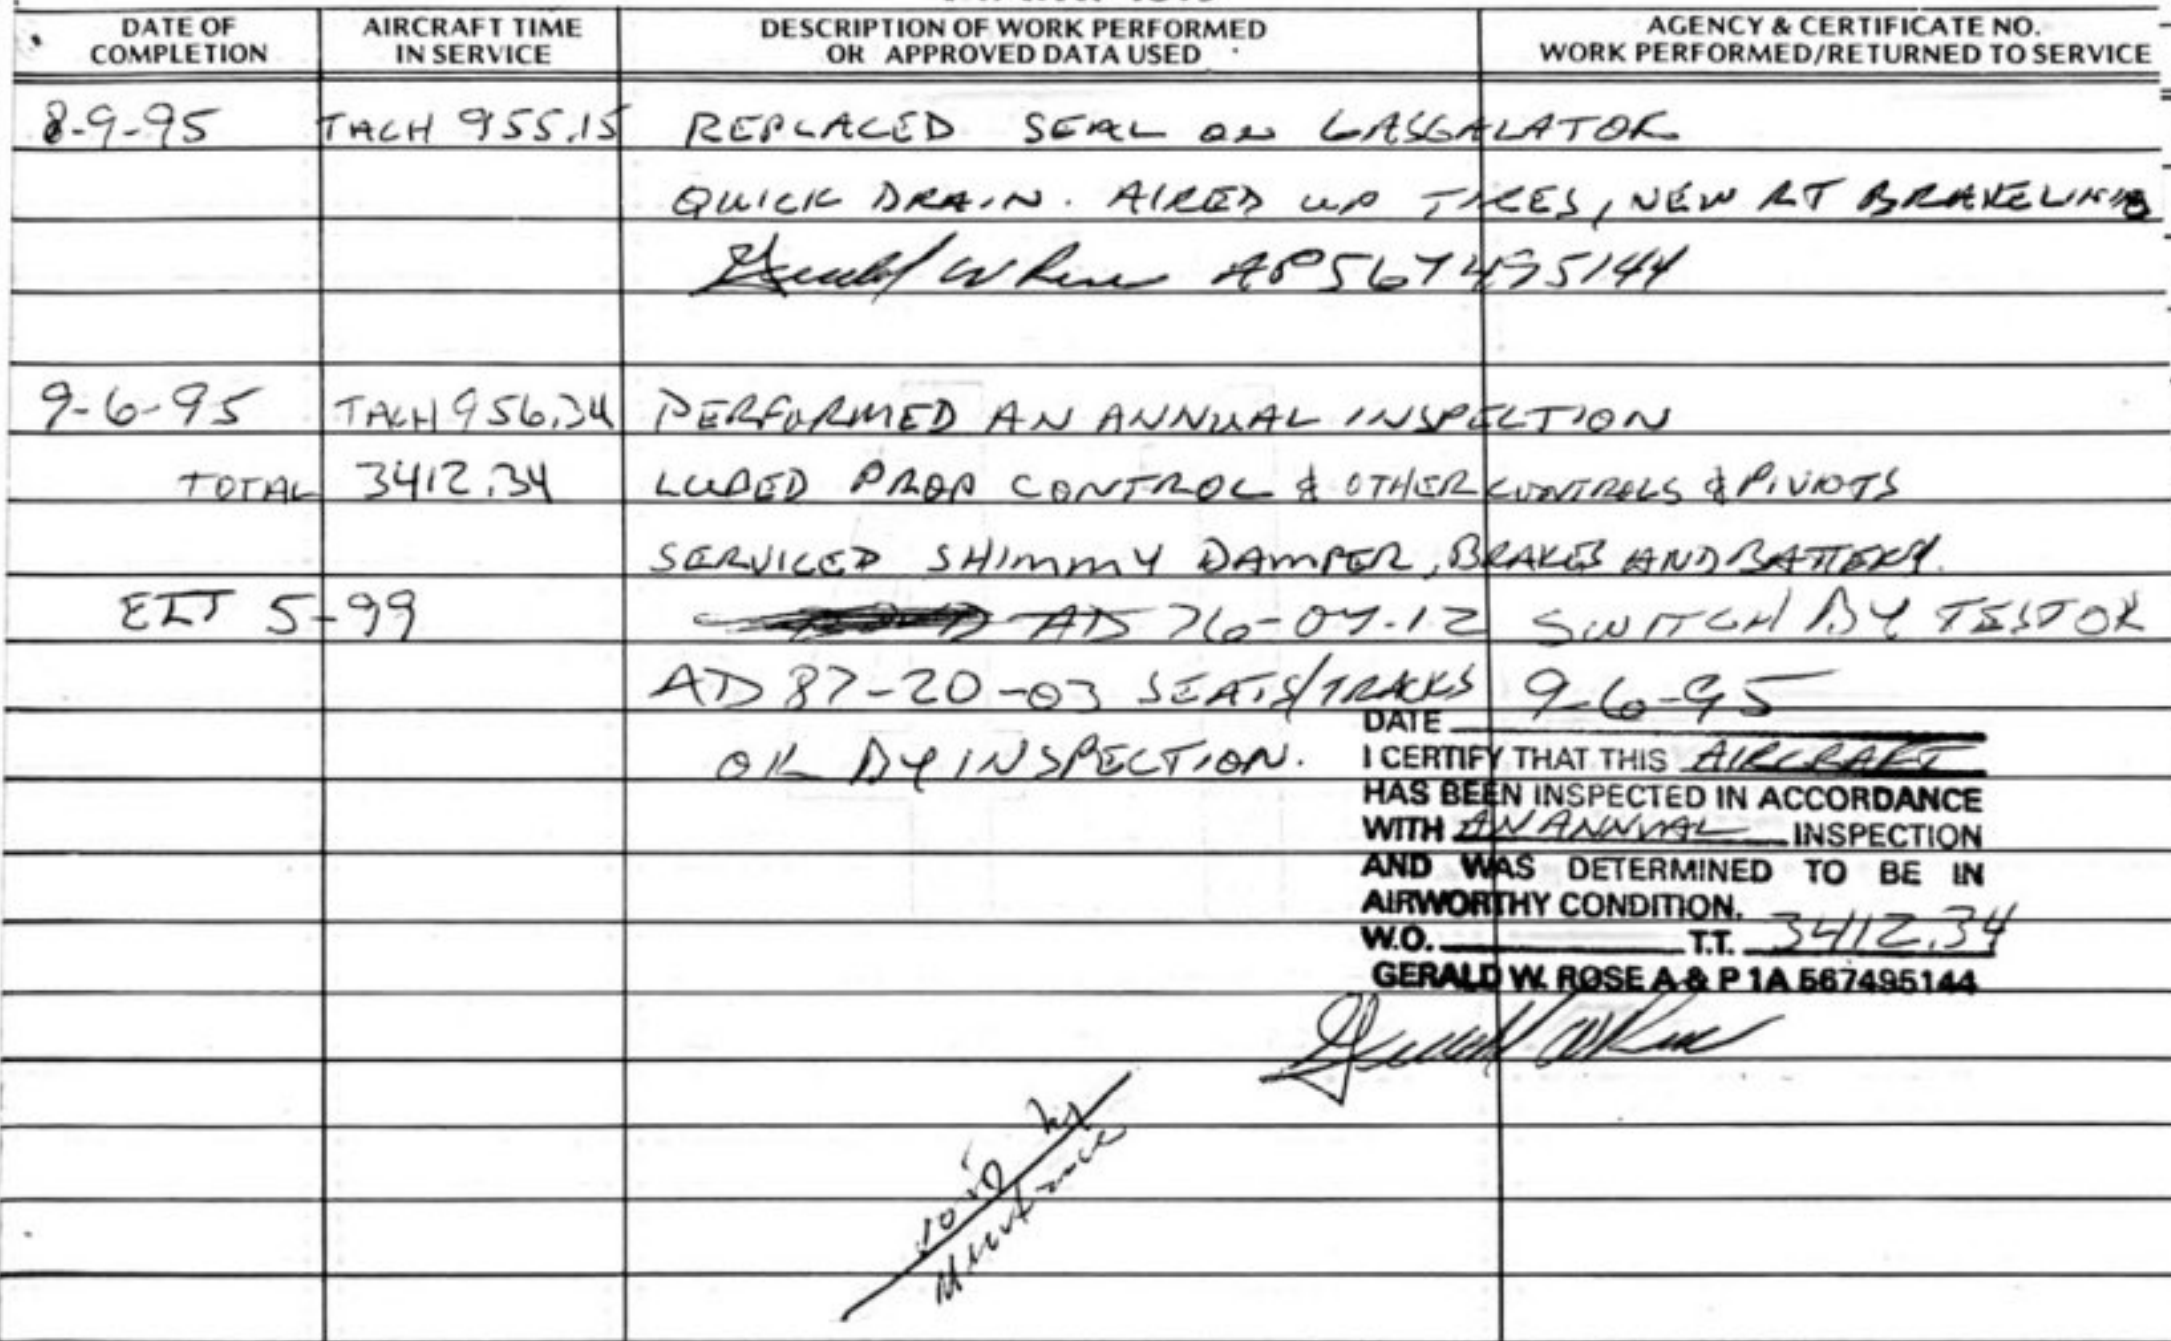 DATE OF COMPLETION
AIRCRAFT TIME IN SERVICE
DESCRIPTION OF WORK PERFORMED OR APPROVED DATA USED
AGENCY & CERTIFICATE NO. WORK PERFORMED/RETURNED TO SERVICE
8-9-95 TACH 955.15 REPLACED SEAL ON GASGALATOR
QUICK DRAIN. AIRED UP TIRES, NEW RT BRAKELINING
AP567495144
9-6-95 TACH 956.34 PERFORMED AN ANNUAL INSPECTION
TOTAL 3412.34 LUBED PROP CONTROL & OTHER CONTROLS & PIVIOTS
SERVICED SHIMMY DAMPER, BRAKES AND BATTERY.
ELT 5-99 AD 76-07-12 SWITCH BY TESTOK
AD 87-20-03 SEATS/TRACKS
OK BY INSPECTION.
DATE 9-6-95
I CERTIFY THAT THIS AIRCRAFT
HAS BEEN INSPECTED IN ACCORDANCE
WITH AN ANNUAL INSPECTION
AND WAS DETERMINED TO BE IN
AIRWORTHY CONDITION.
W.O. T.T. 3412.34
GERALD W. ROSE A & P 1A 567495144